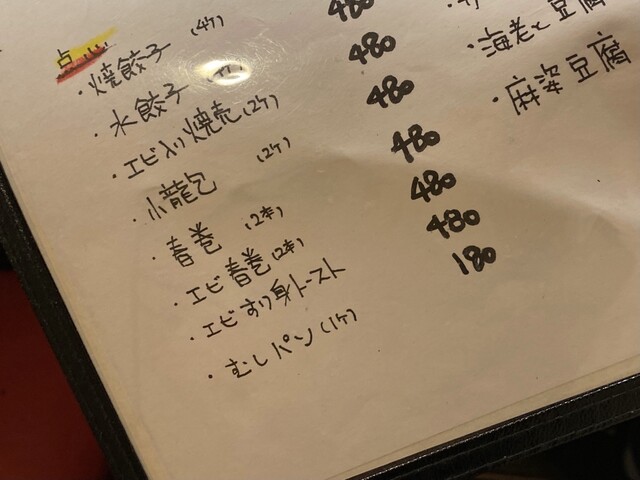 点心
・焼餃子 (4ケ)
・水餃子 480
・エビ入り焼売 (2ケ) 480
・小龍包 (2ケ) 480
・春巻 (2本) 480
・エビ春巻 (2本) 480
・エビすり身トースト 480
・むしパン (1ケ) 180
・海老と豆腐
・麻婆豆腐